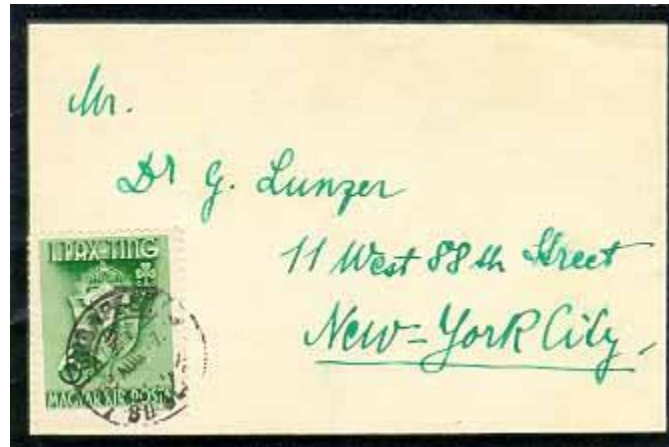 Mr.
Dr G. Lunzer
11 West 88th Street
New-York City,
I. PAX-TING
MAGYAR KIR. POSTA